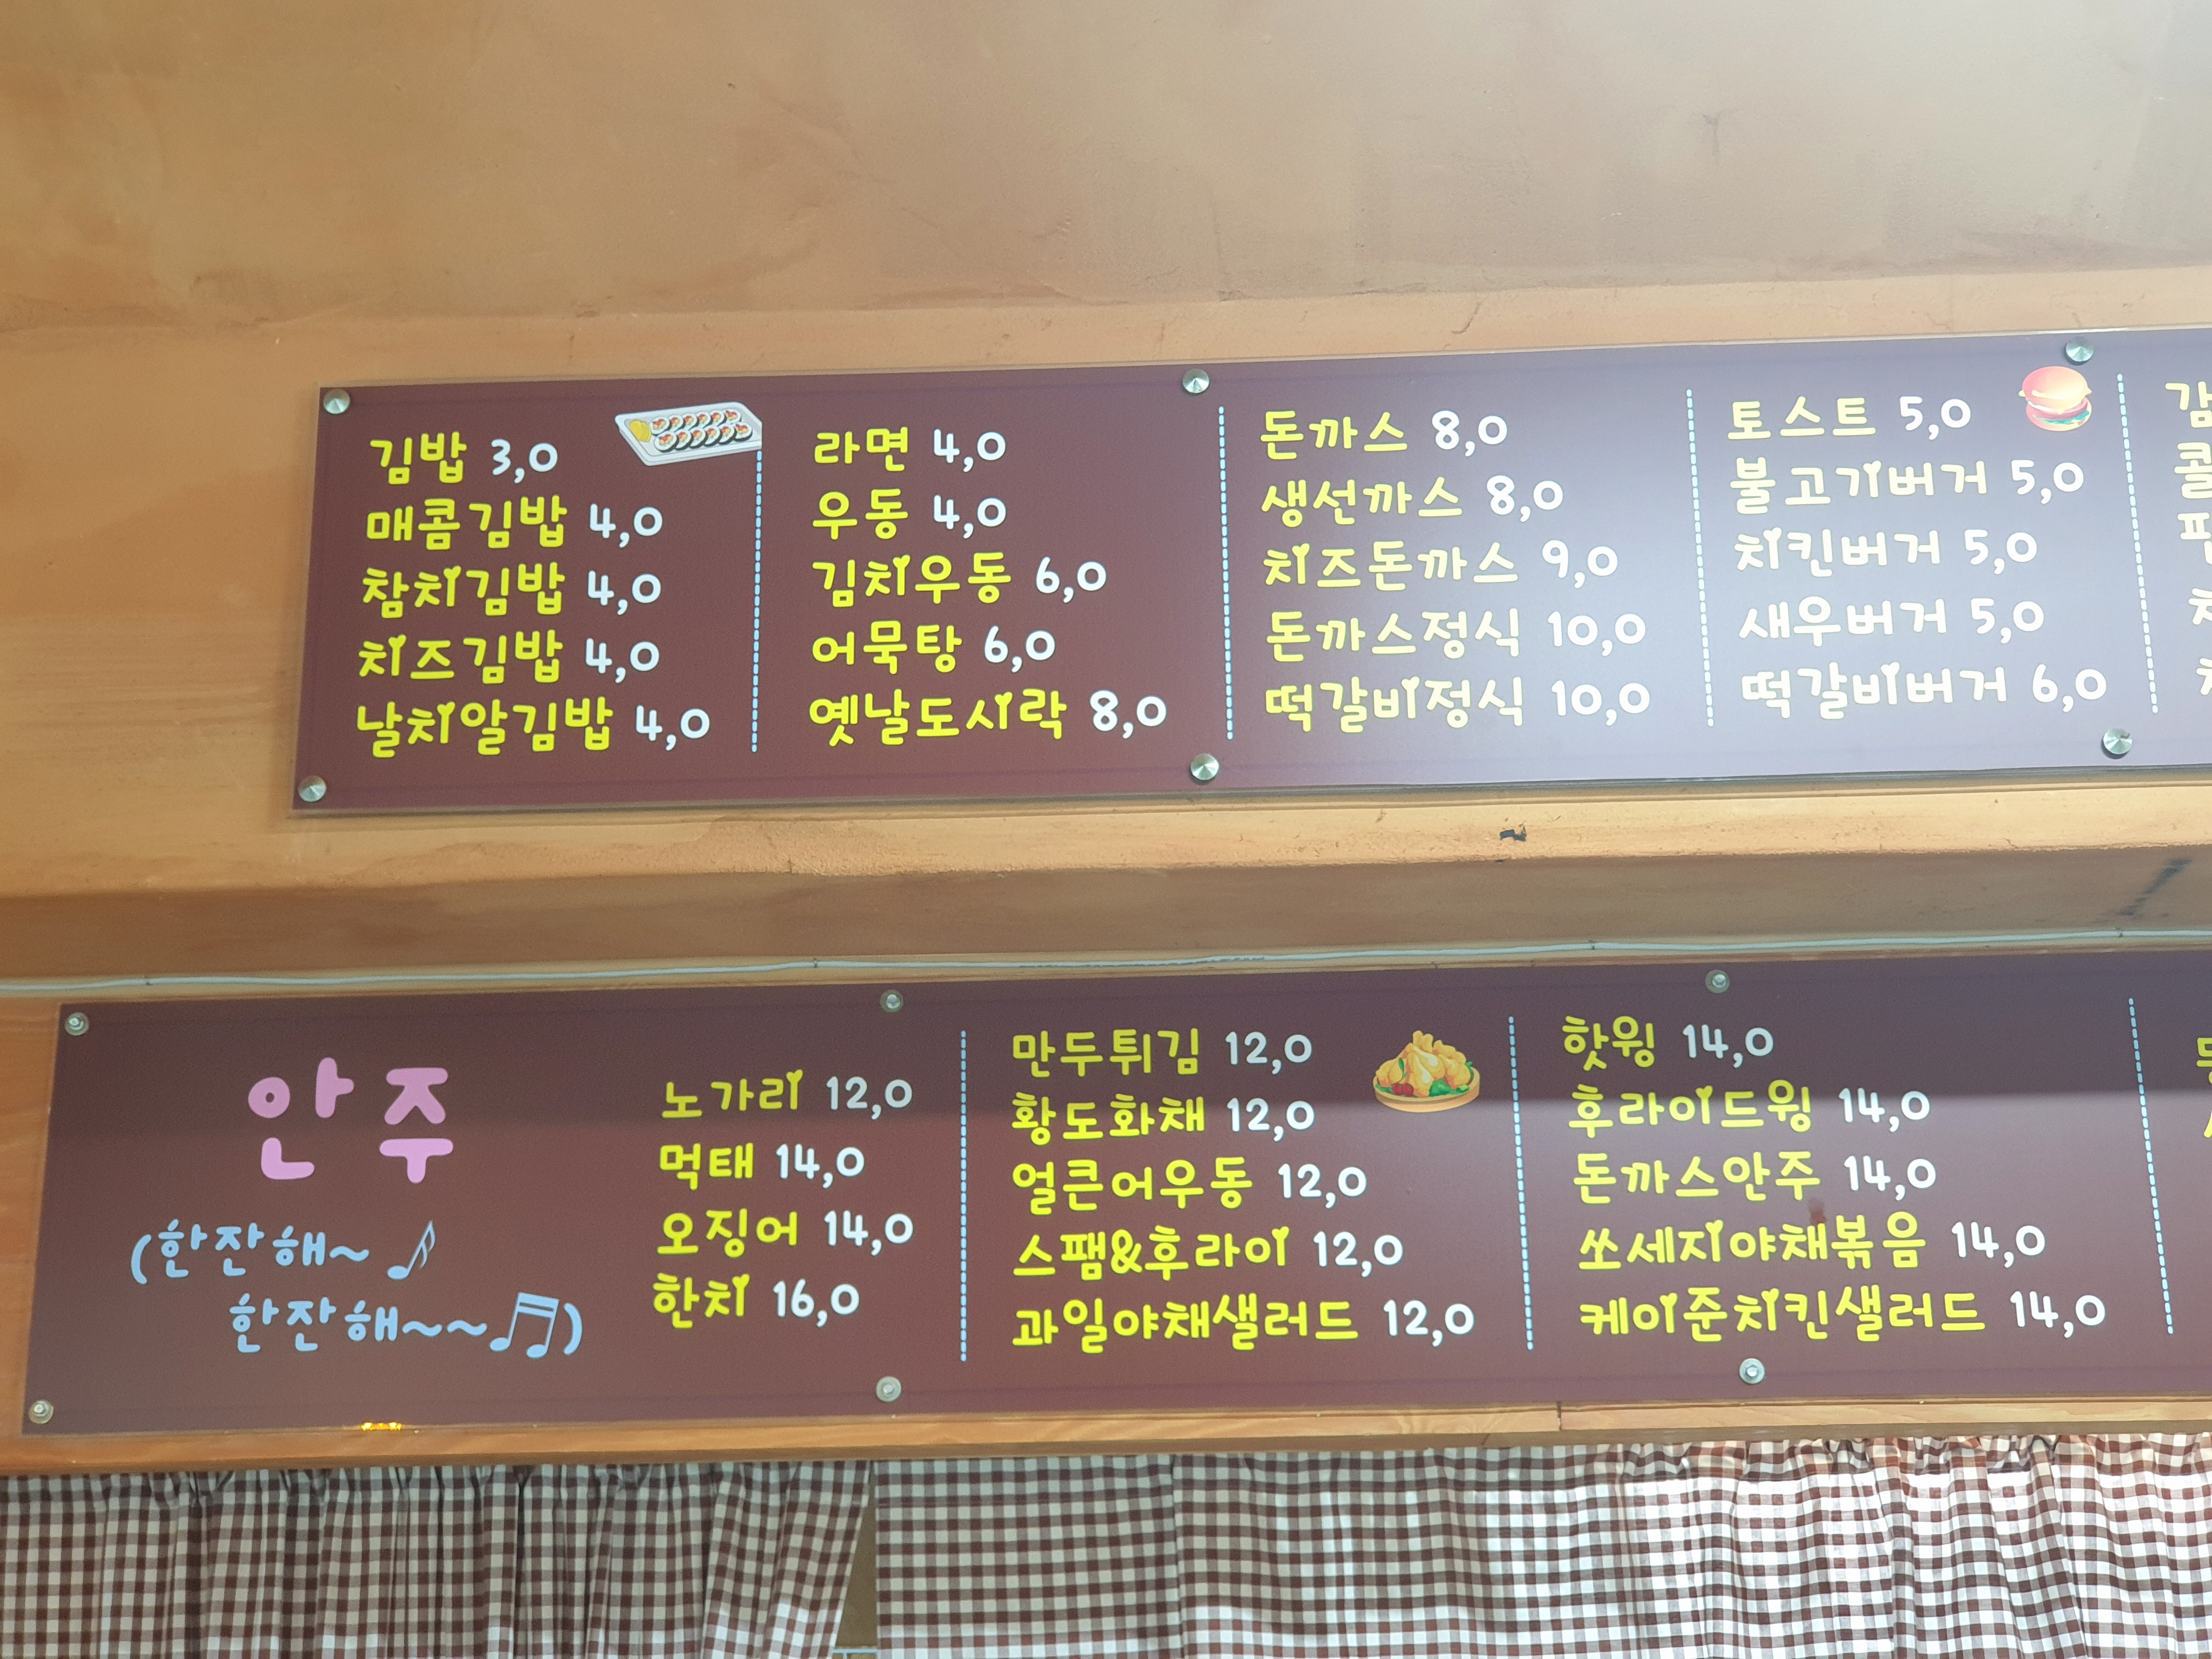 김밥 3,0
매콤김밥 4,0
참치김밥 4,0
치즈김밥 4,0
날치알김밥 4,0
라면 4,0
우동 4,0
김치우동 6,0
어묵탕 6,0
옛날도시락 8,0
돈까스 8,0
생선까스 8,0
치즈돈까스 9,0
돈까스정식 10,0
떡갈비정식 10,0
토스트 5,0
불고기버거 5,0
치킨버거 5,0
새우버거 5,0
떡갈비버거 6,0
안주
(한잔해~
한잔해~~)
노가리 12,0
먹태 14,0
오징어 14,0
한치 16,0
만두튀김 12,0
황도화채 12,0
얼큰어우동 12,0
스팸&후라이 12,0
과일야채샐러드 12,0
핫윙 14,0
후라이드윙 14,0
돈까스안주 14,0
쏘세지야채볶음 14,0
케이준치킨샐러드 14,0